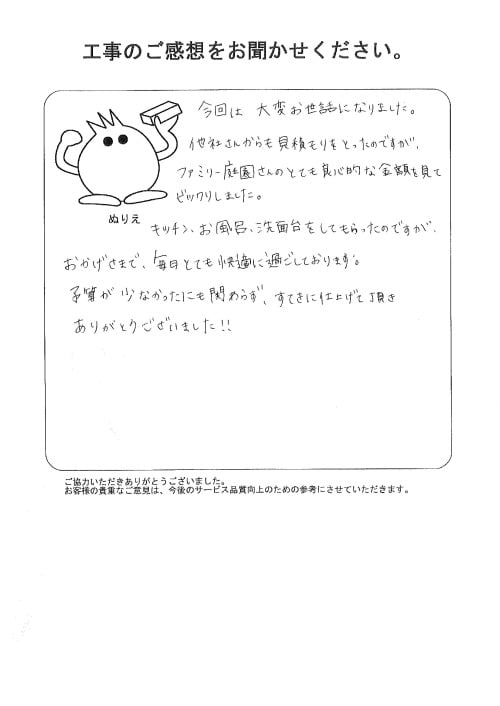 工事のご感想をお聞かせください。
今回は 大変お世話になりました。
他社さんからも見積もりをとったのですが、
ファミリー庭園さんのとても良心的な金額を見て
ビックリしました。
ぬりえ
キッチン、お風呂、洗面台をしてもらったのですが、
おかげさまで、毎日とても快適に過ごしております。
予算が少なかったにも関わらず、すてきに仕上げて頂き
ありがとうございました!!
ご協力いただきありがとうございました。
お客様の貴重なご意見は、今後のサービス品質向上のための参考にさせていただきます。